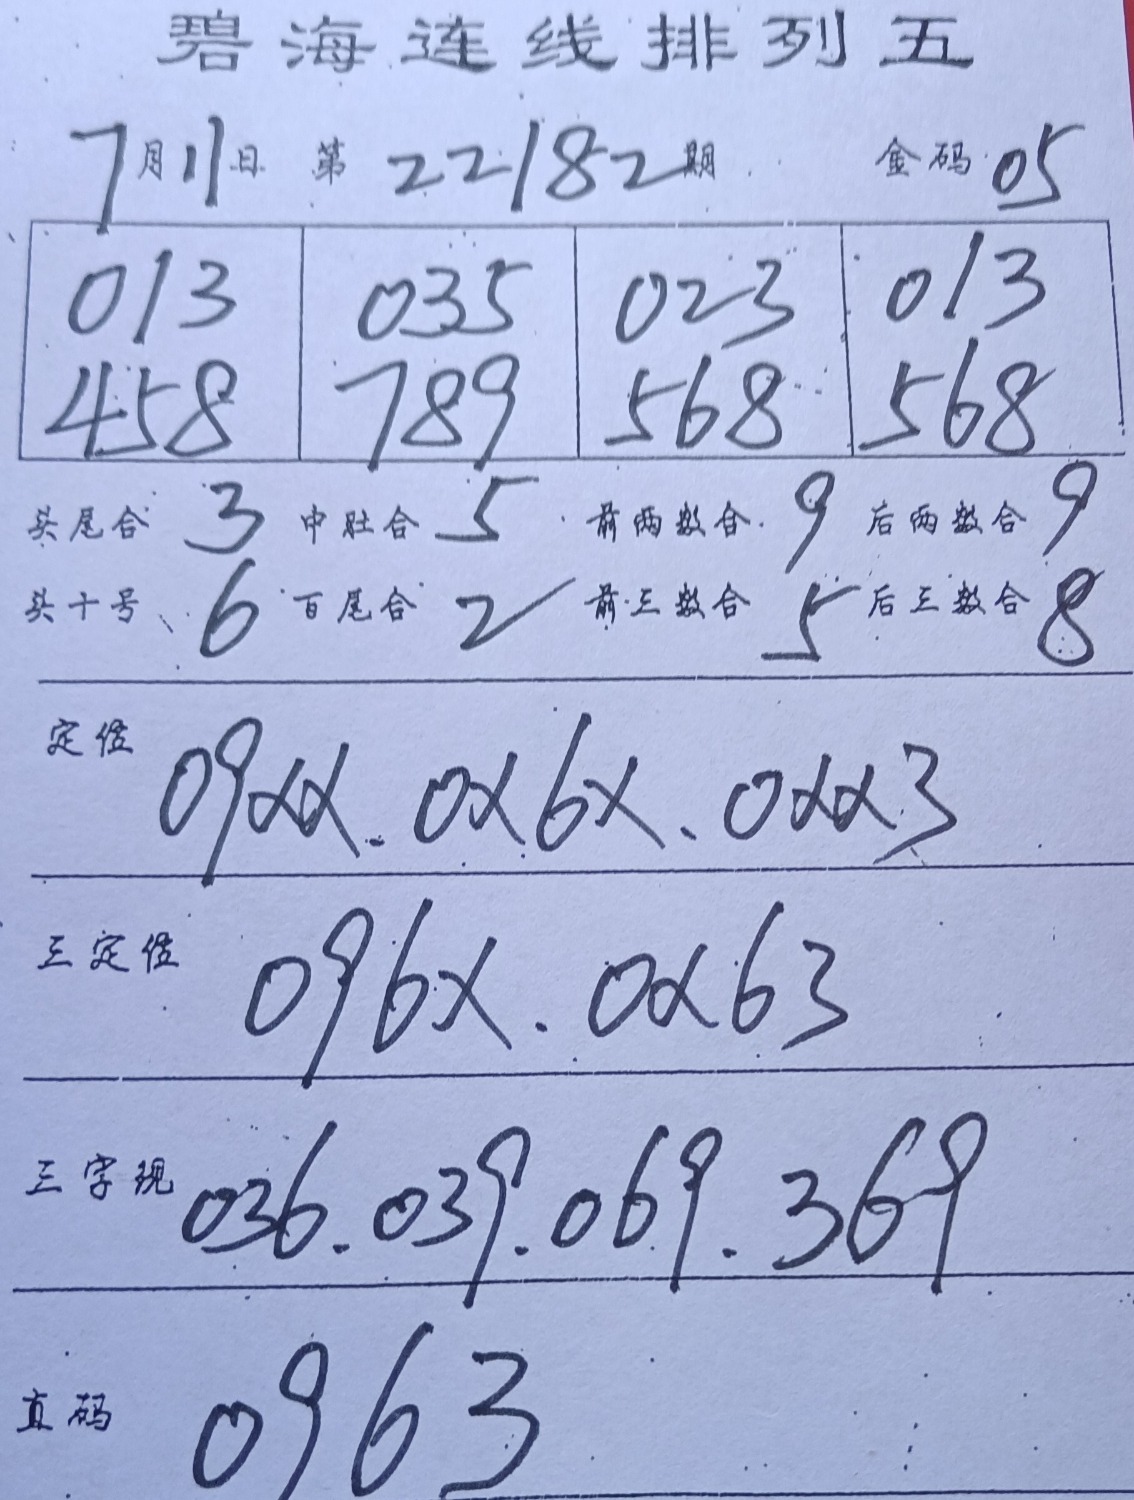 碧海连线排列五
7月11日 第22182期 金码05
013 035 023 013
458 789 568 568
头尾合 3 中肚合 5 前两数合 9 后两数合 9
头十号 6 百尾合 2 前三数合 5 后三数合 8
定位 09xx.0x6x.0xx3
三定位 096x.0x63
三字现 036.039.069.369
直码 0963